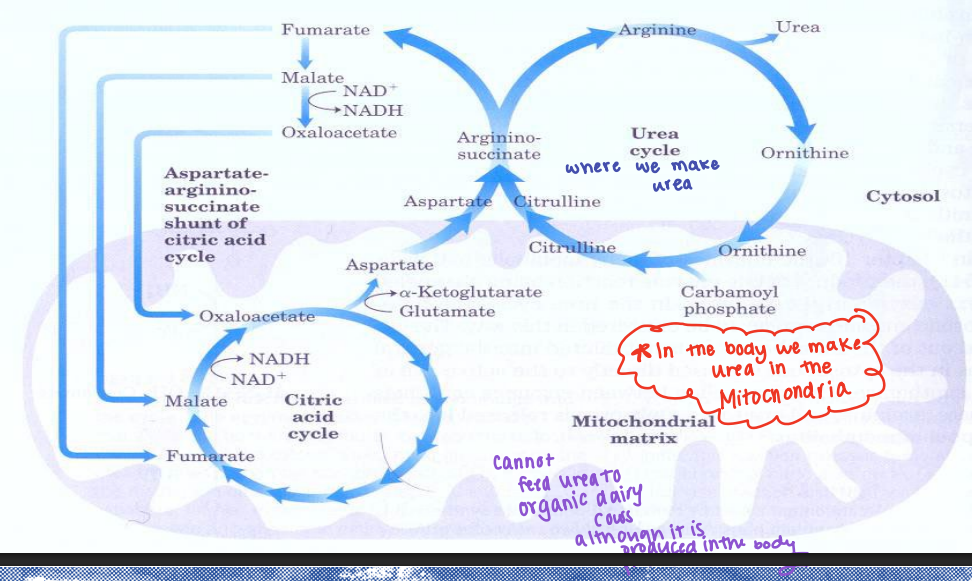 Fumarate
Arginine
Urea
Malate
NAD+
NADH
Oxaloacetate
Arginino-
succinate
Urea
cycle
where we make
urea
Ornithine
Aspartate-
arginino-
succinate
shunt of
citric acid
cycle
Aspartate
Citrulline
Cytosol
Citrulline
Ornithine
Aspartate
α-Ketoglutarate
Glutamate
Carbamoyl
phosphate
Oxaloacetate
NADH
NAD+
Malate
Citric
acid
cycle
Fumarate
* In the body we make
urea in the
Mitochondria
Mitochondrial
matrix
Cannot
feed urea to
organic dairy
cows
although it is
produced in the body